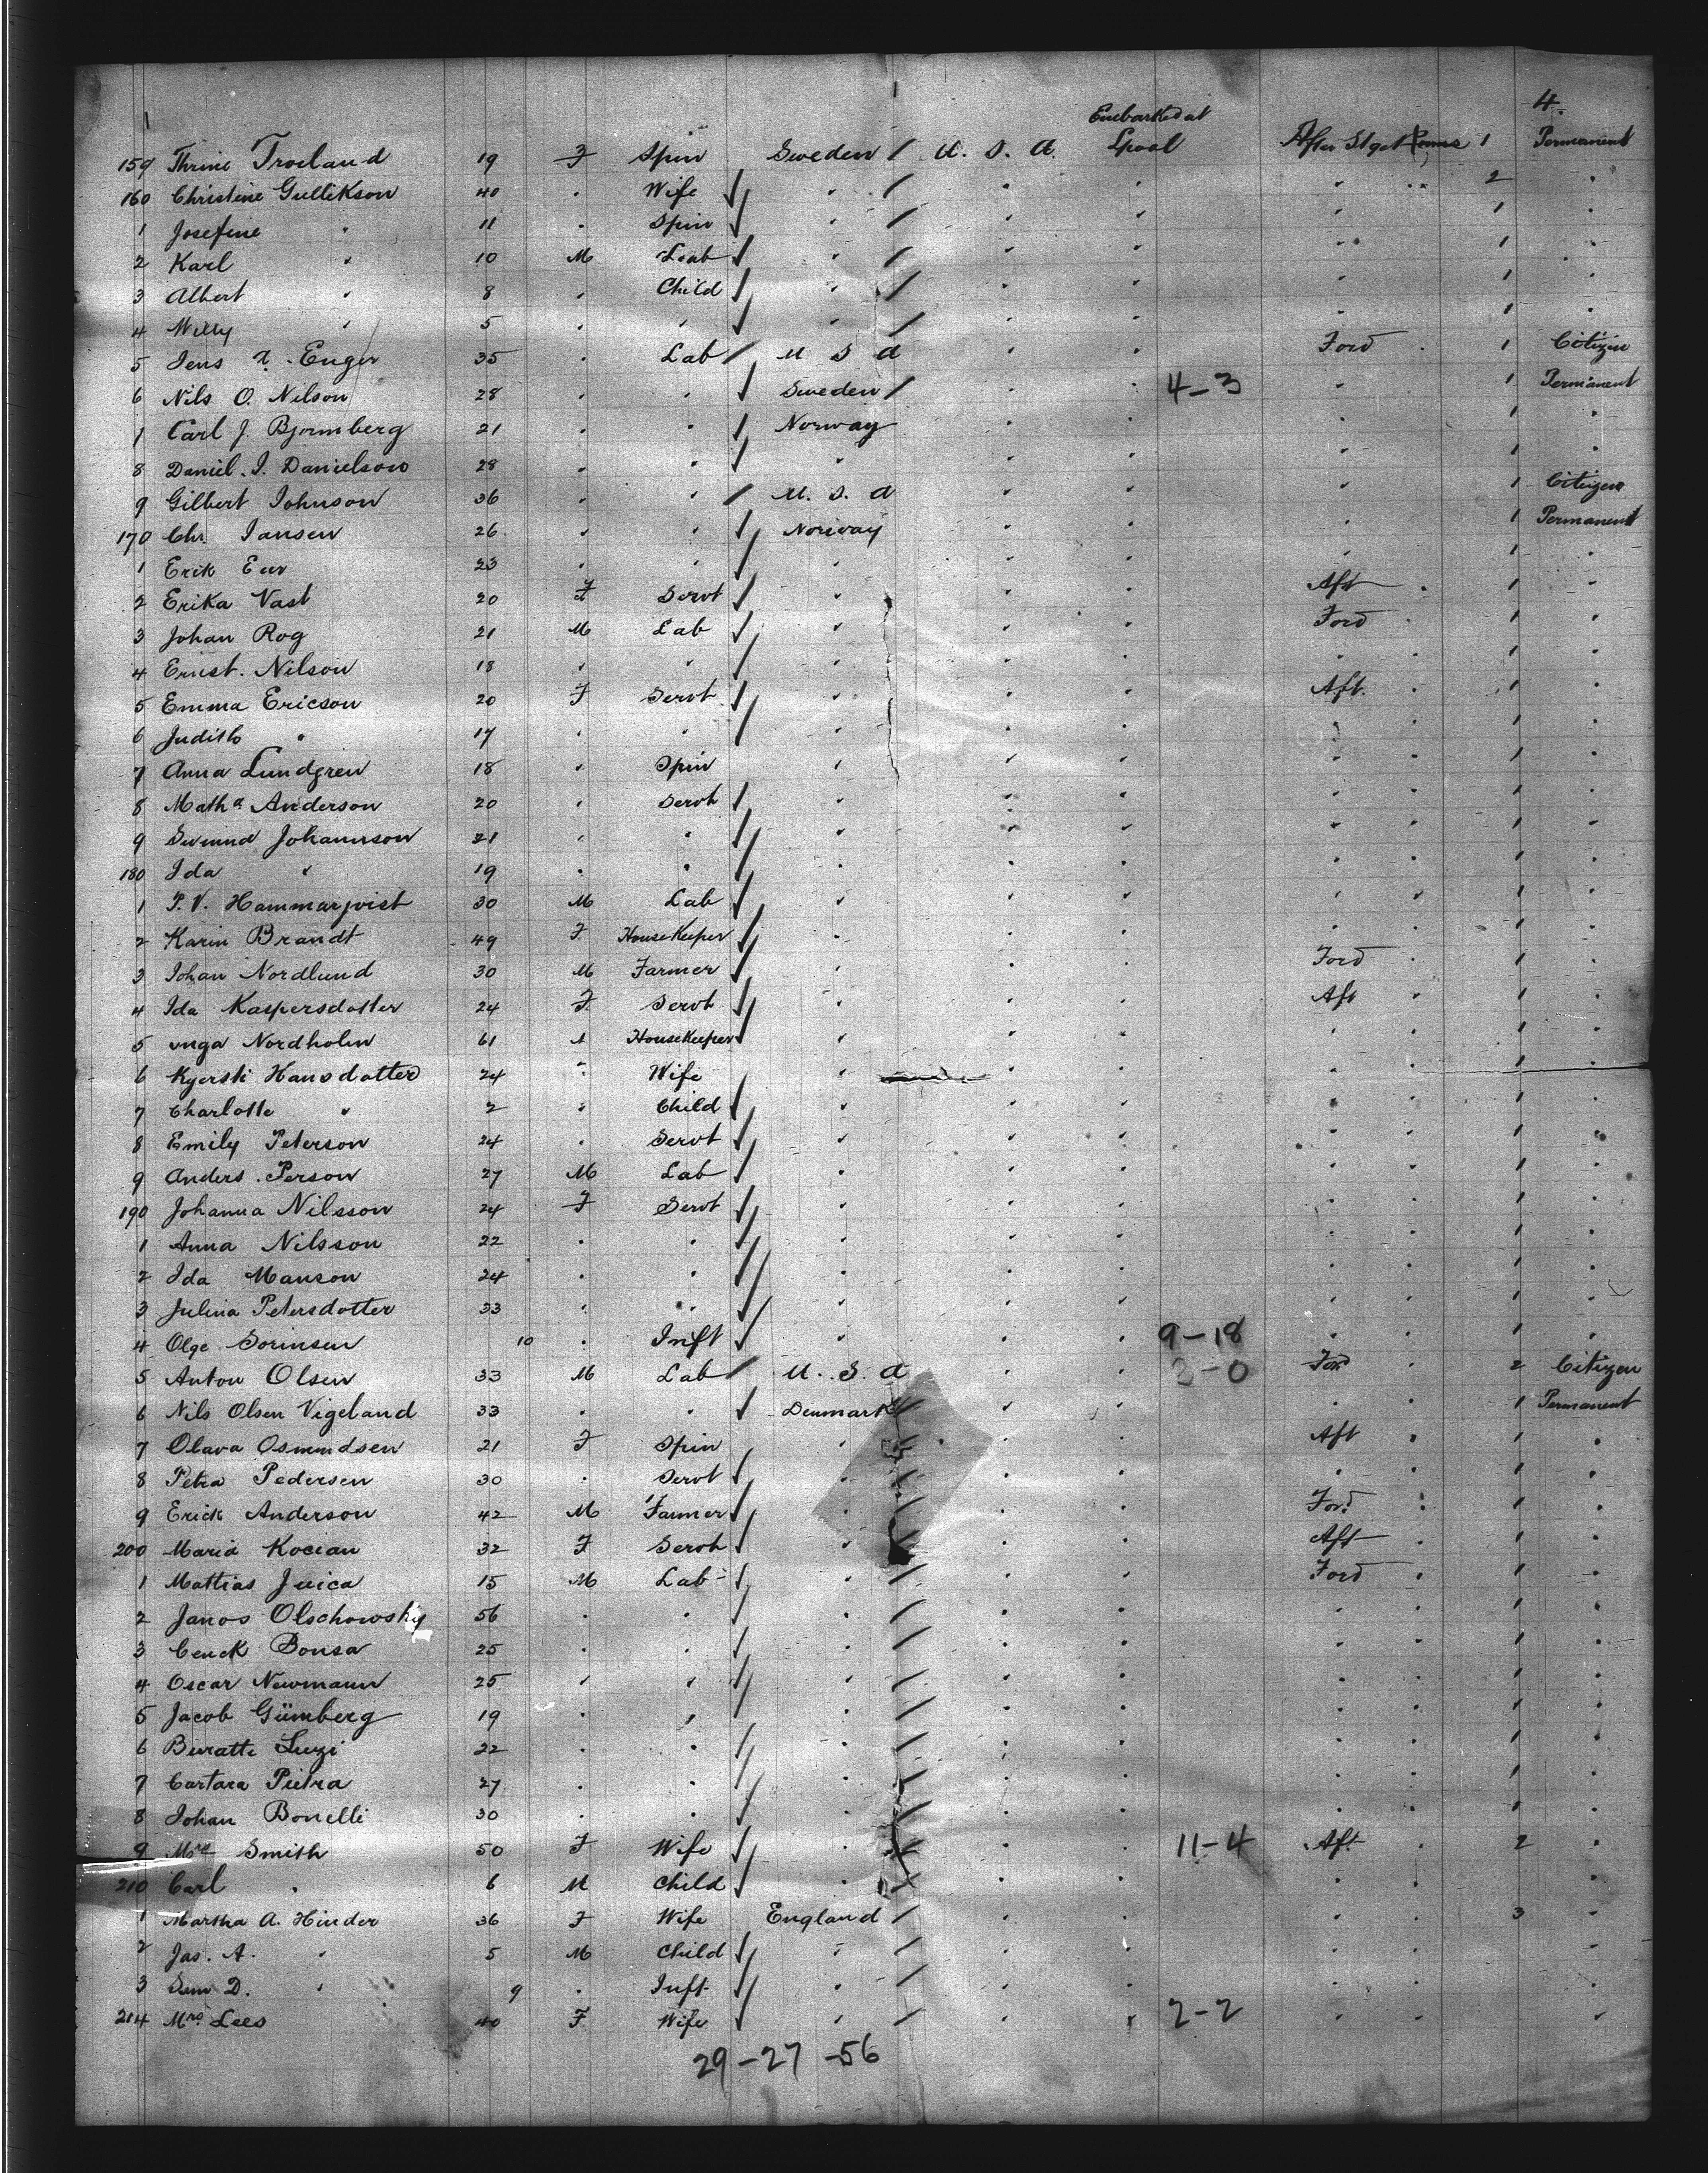 4.
Embarked at
159 Thrine Troeland 19 F Spin Sweden / U. S. A. Lpool After Stget Rooms 1 Permanent
160 Christine Gullikson 40 . Wife " " " " 2 "
1 Josefine " 11 . Spin " " " " 1 "
2 Karl " 10 M Lab " " " " 1 "
3 Albert " 8 " Child " " " " 1 "
4 Willy " 5 " " " " " " 1 "
5 Jens Enger 35 " Lab U S A " " Ford " 1 Citizen
6 Nils O. Nilson 28 " " Sweden " " 4-3 " 1 Permanent
1 Carl J. Bjornberg 21 " " Norway " " " 1 "
8 Daniel. I. Danielson 28 " " " " " " 1 "
9 Gilbert Johnson 36 " " U. S. A " " " 1 Citizen
170 Chr. Jansen 26 " " Norway " " " 1 Permanent
1 Erik 23 " " " " " " 1 "
2 Erika Vast 20 F Servt " " " Aft " 1 "
3 Johan Rog 21 M Lab " " " Ford " 1 "
4 Ernst. Nilson 18 " " " " " " " 1 "
5 Emma Ericson 20 F Servt " " " Aft. " 1 "
6 Judith " 17 " " " " " " " 1 "
7 Anna Lundgren 18 " Spin " " " " " 1 "
8 Matha Anderson 20 " Servt " " " " " 1 "
9 Johannson 21 " " " " " " " 1 "
180 Ida " 19 " " " " " " " 1 "
1 P. V. Hammarqvist 30 M Lab " " " " " 1 "
2 Karin Brandt 49 F HouseKeeper " " " " " 1 "
3 Johan Nordlund 30 M Farmer " " " Ford " 1 "
4 Ida Kaspersdotter 24 F Servt " " " Aft " 1 "
5 Inga Nordholm 61 " HouseKeeper " " " " " 1 "
6 Kjersti Hansdotter 24 " Wife " " " " " 1 "
7 Charlotte " 2 " Child " " " " " 1 "
8 Emily Peterson 24 " Servt " " " " " 1 "
9 Anders. Person 27 M Lab " " " " " 1 "
190 Johanna Nilsson 24 F Servt " " " " " 1 "
1 Anna Nilsson 22 " " " " " " " 1 "
2 Ida Manson 24 " " " " " " " 1 "
3 Julina Petersdotter 33 " " " " " " " 1 "
4 Olge Sorinsen 10 " Inft " " " 9-18 " " 1 "
5 Anton Olsen 33 M Lab U. S. A " " 3-0 For " 2 Citizen
6 Nils Olsen Vigeland 33 " " Denmark " " " " 1 Permanent
7 Olava Osmundsen 21 F Spin " " " Aft " 1 "
8 Petra Pedersen 30 " Servt " " " " " 1 "
9 Erick Anderson 42 M Farmer " " " Ford " 1 "
200 Maria Kocian 32 F Servt " " " Aft " 1 "
1 Mattias Juica 15 M Lab " " " Ford " 1 "
2 Janos Olschowsky 56 " " " " " " " 1 "
3 Cenek Bonsa 25 " " " " " " " 1 "
4 Oscar Newmann 25 " " " " " " " 1 "
5 Jacob Gümberg 19 " " " " " " " 1 "
6 Buratti Luzi 22 " " " " " " " 1 "
7 Cartara Pietra 27 " " " " " " " 1 "
8 Johan Bonelli 30 " " " " " " " 1 "
9 Mrs Smith 50 F Wife " " " 11-4 Aft " 2 "
210 Carl " 6 M Child " " " " " "
1 Martha A. Hinder 36 F Wife England " " " " 3 "
2 Jas. A. " 5 M Child " " " " " "
3 D. " 9 " Inft " " " " " "
214 Mrs Lees 40 F Wife " " " 2-2 " " "
29-27-56